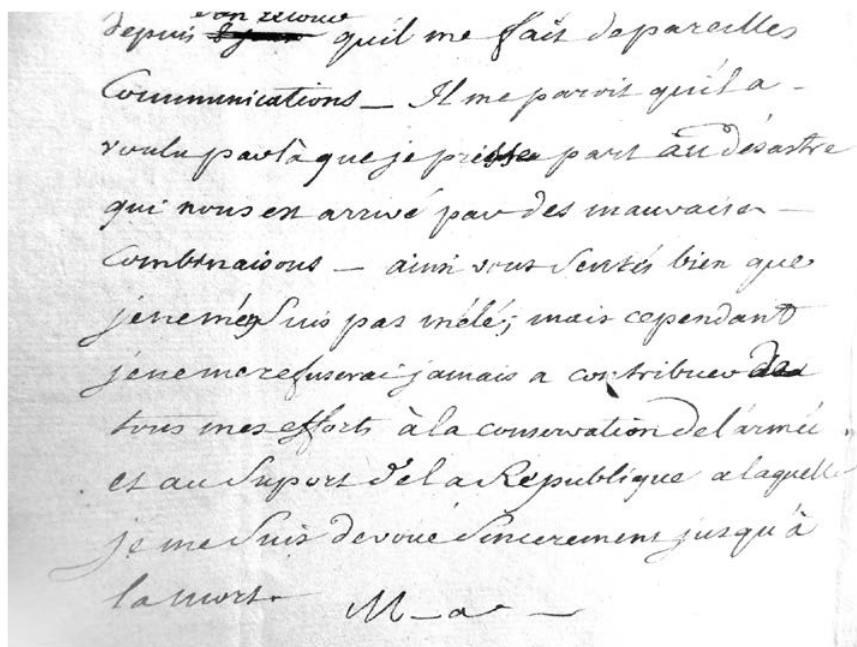 son retour
depuis qu'il me fait de pareilles
Communications — Il me paroit qu'il a —
voulu par là que je prisse part au désastre
qui nous est arrivé par des mauvaises —
Combinaisons — ainsi vous sentés bien que
je ne m'en suis pas mélé; mais cependant
je ne me refuserai jamais a contribuer de
tous mes efforts à la conservation de l'armée
et au suport de la République a laquelle
je me suis devoué sincerement jusqu'à
la mort. M—a— —